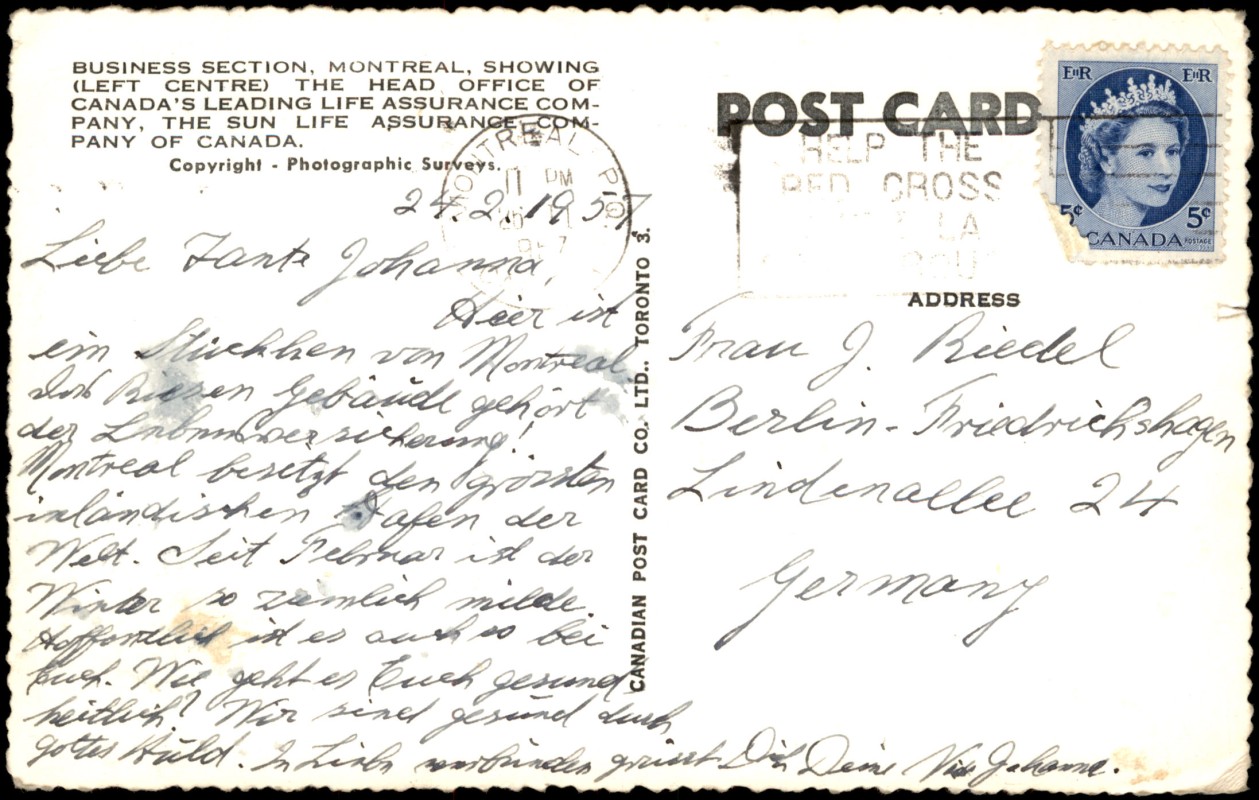 BUSINESS SECTION, MONTREAL, SHOWING
(LEFT CENTRE) THE HEAD OFFICE OF
CANADA'S LEADING LIFE ASSURANCE COM-
PANY, THE SUN LIFE ASSURANCE COM-
PANY OF CANADA.
Copyright - Photographic Surveys.
24.2.1957
Liebe Tante Johanna,
Hier ist
ein Stückchen von Montreal.
Das Riesen Gebäude gehört
der Lebensversicherung!
Montreal besetzt den grössten
inländischen Hafen der
Welt. Seit Februar ist der
Winter so ziemlich milde.
Hoffentlich ist es auch so bei
Euch. Wie geht es Euch gesund
heitlich? Wir sind gesund durch
Gottes Huld. In Liebe verbunden grüsst Dich Deine Johanna.
CANADIAN POST CARD CO. LTD., TORONTO 3.
POST CARD
MONTREAL P.Q.
11 PM
HELP THE
RED CROSS
LA
EIIR EIIR
5¢ 5¢
CANADA POSTAGE
ADDRESS
Frau J. Riedel
Berlin-Friedrichshagen
Lindenallee 24
Germany